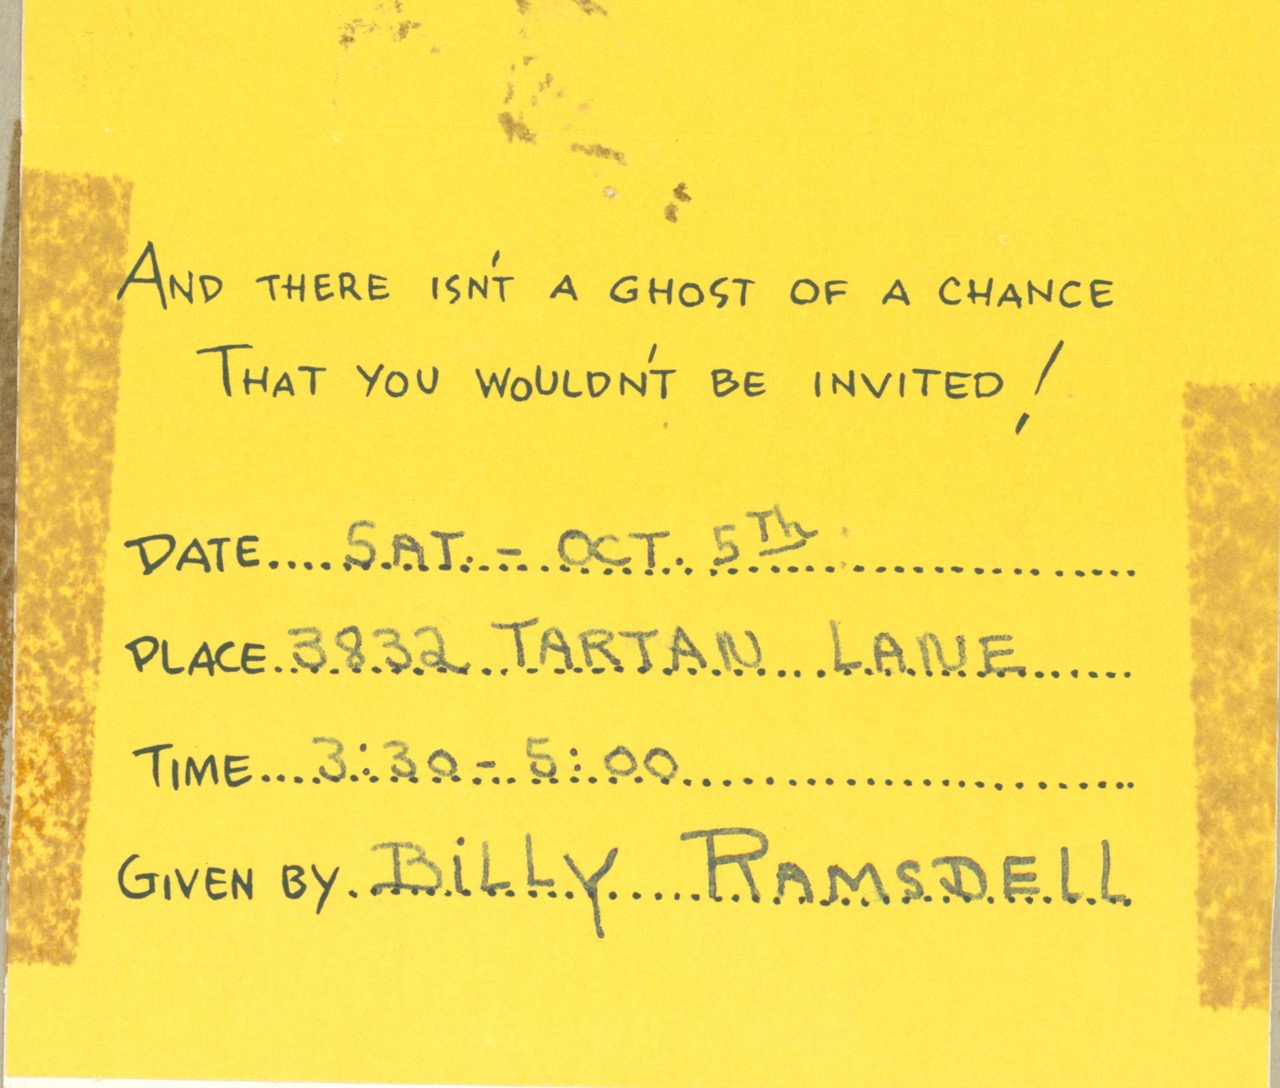 And there isn't a ghost of a chance
That you wouldn't be invited!
Date....Sat. - Oct. 5th
Place.3832 Tartan Lane
Time....3:30-5:00
Given by.Billy Ramsdell